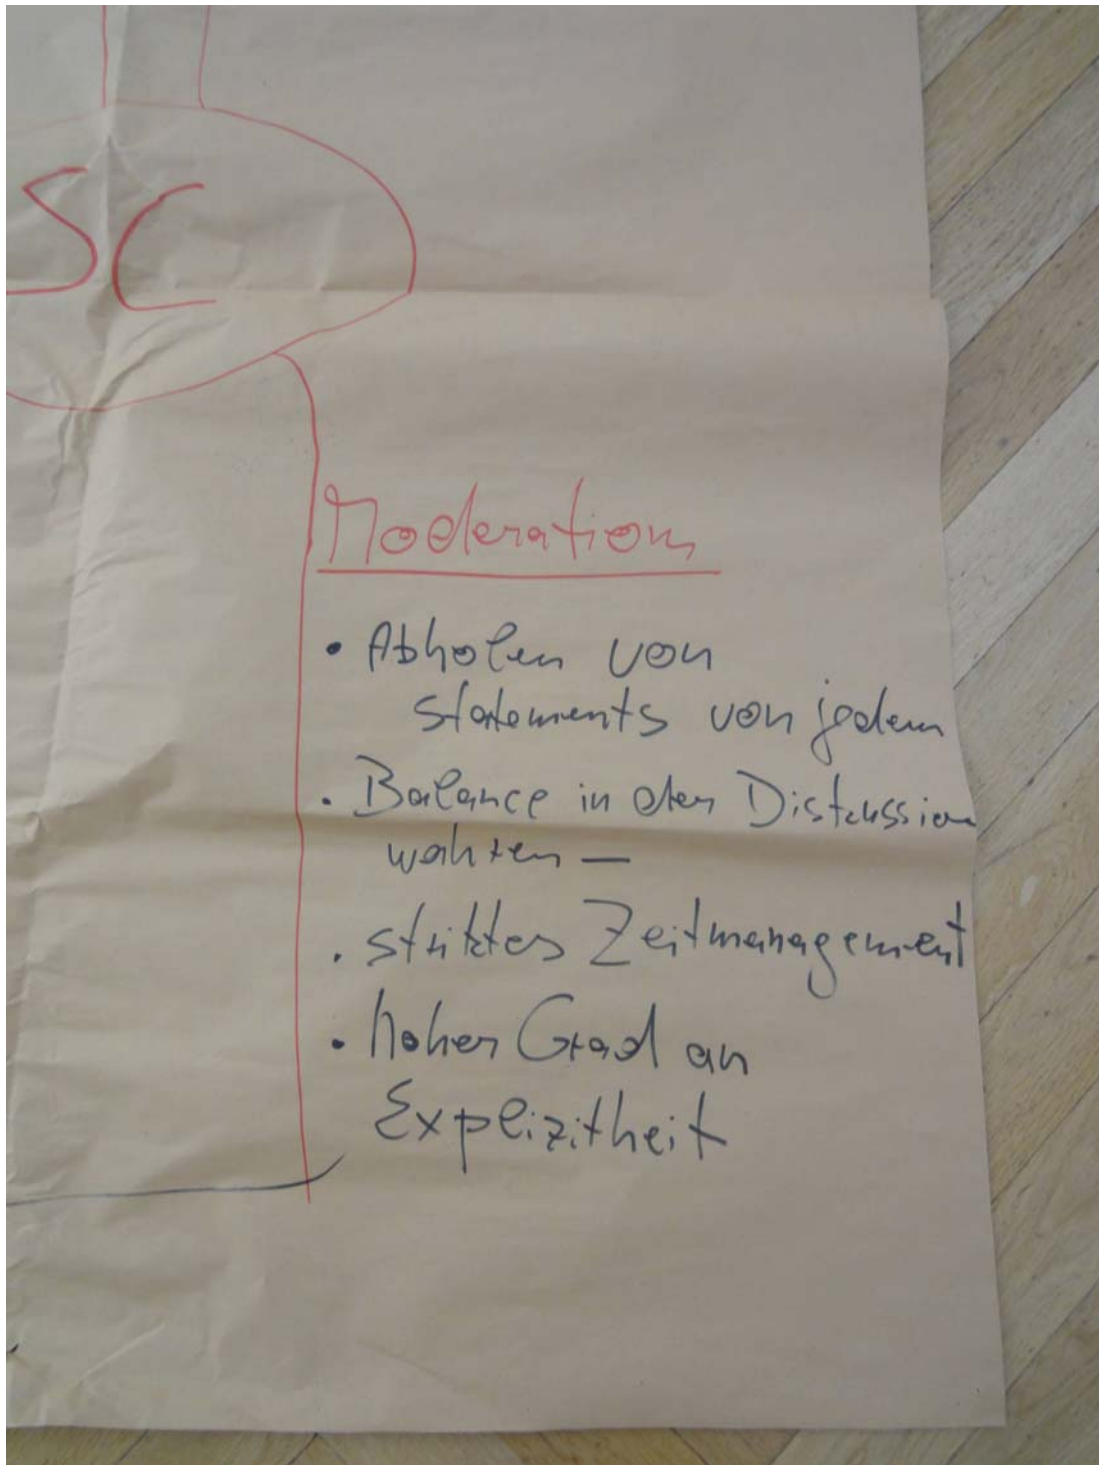 SC
Moderation
• Abholen von
statements von jedem
• Balance in der Diskussion
wahren —
• striktes Zeitmanagement
• hoher Grad an
Explizitheit